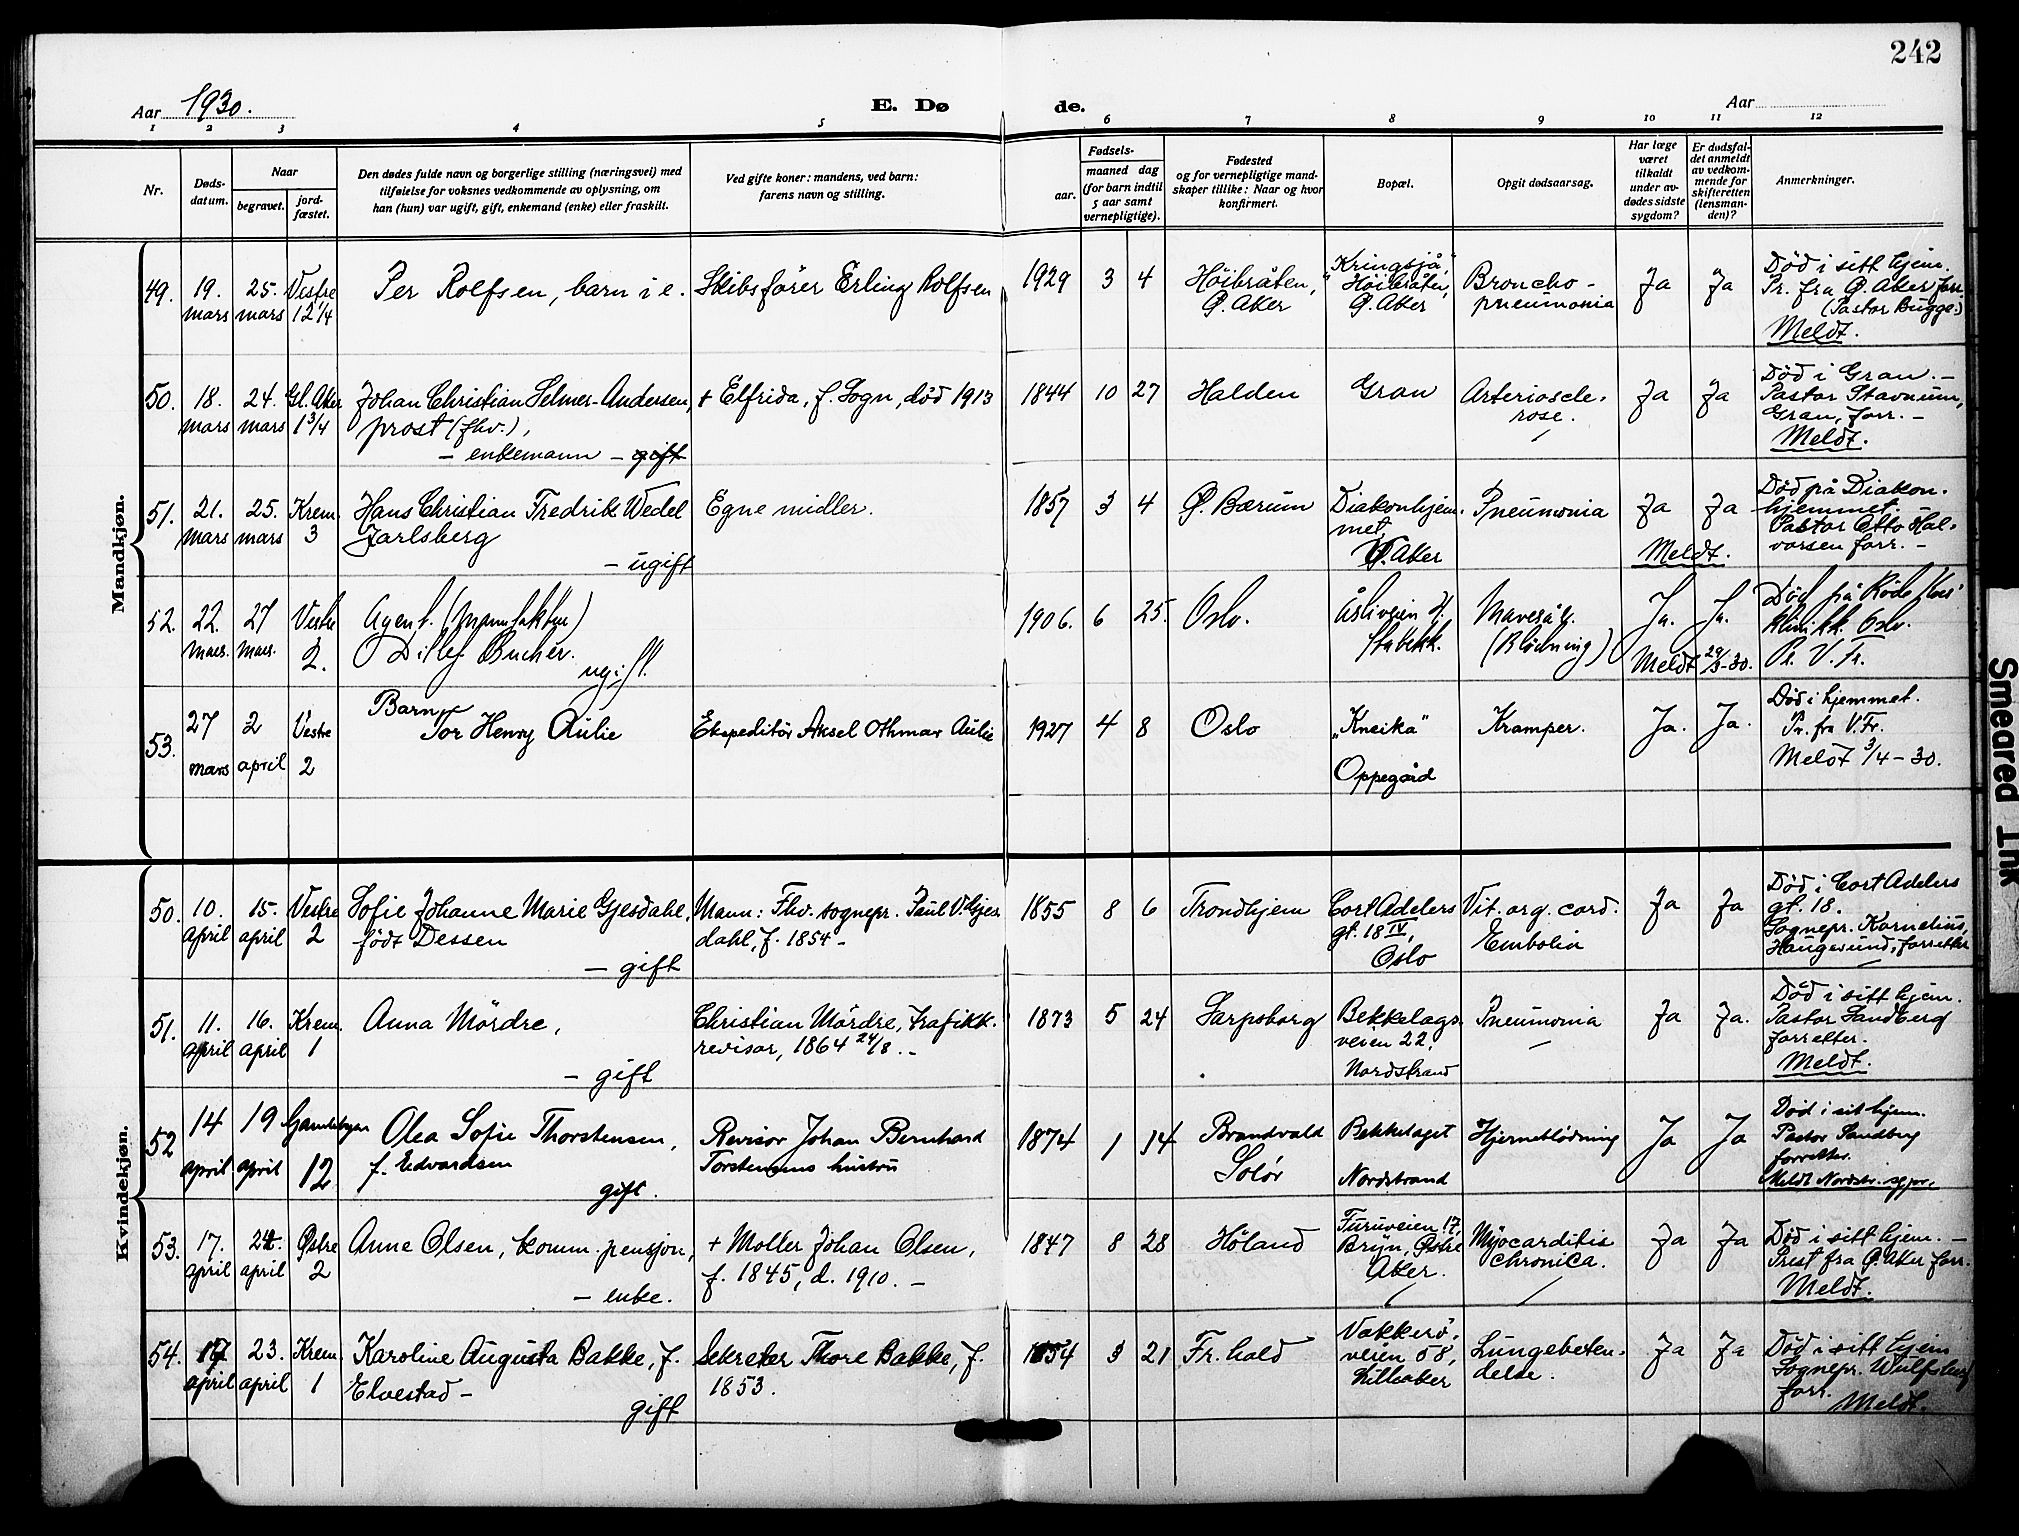 242
Aar 1930.
E. Dø
de.
Aar
1 2 3 4 5 6 7 8 9 10 11 12
Nr.
Døds-
datum.
Naar
begravet.
jord-
fæstet.
Den dødes fulde navn og borgerlige stilling (næringsvei) med
tilføielse for voksnes vedkommende av oplysning, om
han (hun) var ugift, gift, enkemand (enke) eller fraskilt.
Ved gifte koner: mandens, ved barn:
farens navn og stilling.
Fødsels-
aar.
maaned dag
(for barn indtil
5 aar samt
vernepligtige).
Fødested
og for vernepligtige mand-
skaper tillike: Naar og hvor
konfirmert.
Bopæl.
Opgit dødsaarsag.
Har læge
været
tilkaldt
under av-
dødes sidste
sygdom?
Er dødsfal-
det anmeldt
av vedkom-
mende for
skifteretten
(lensman-
den)?
Anmerkninger.
Mandkjøn.
49. 19. mars
25. mars
Vestre 12 1/4
Per Rolfsen, barn i e.
Skibsfører Erling Rolfsen
1929 3 4
Höibråten,
Ø. Aker
"Kringsjå,"
Höibråten,
Ø. Aker
Broncho-
pneumonia
Ja Ja
Död i sitt hjem.
Pr. fra Ø. Aker forr.
(Pastor Bugge.)
Meldt.
50. 18. mars
24. mars
Gl. Aker 1 3/4
Johan Christian Selmer-Andersen,
prost (fhv.),
- enkemann - gift
+ Elfrida, f. Sogn, död 1913
1844 10 27
Halden
Gran
Arterioscle-
rose.
Ja Ja
Död i Gran. -
Pastor Stavnum,
Gran, forr. -
Meldt.
51. 21. mars
25. mars
Krem. 3
Hans Christian Fredrik Wedel
Jarlsberg
- ugift
Egne midler.
1857 3 4
Ø. Bærum
Diakonhjem-
met,
V. Aker
Pneumonia
Ja Ja
Meldt.
Död på Diakon-
hjemmet.
Pastor Otto Hal-
vorsen forr. -
52. 22. mars.
27 mars.
Vestre 2.
Agent. (Manufaktur)
Ditlef Bucher.
ugift.
1906. 6 25.
Oslo.
Åsliveien
Stabekk.
Mavesår.
(Blödning)
Ja. Ja.
Meldt 29/3-30.
Död på Röde Kors'
Klinikk Oslo.
Pr. V. Fr.
53. 27 mars
2 april
Vestre 2
Barn
Tor Henry Aulie
Ekspeditör Aksel Othmar Aulie
1927 4 8
Oslo
"Kneika"
Oppegård
Kramper.
Ja. Ja.
Död i hjemmet.
Pr. fra V. Fr.
Meldt 3/4-30.
Kvindekjøn.
50. 10. april
15. april
Vestre 2
Sofie Johanne Marie Gjesdahl,
født Dessen
- gift
Mann: Fhv. sognepr. Paul V. Gjes-
dahl, f. 1854 -
1855 8 6
Trondhjem
Cort Adelers
gt. 18 IV,
Oslo
Vit. org. cord.
Embolia
Ja Ja
Död i Cort Adelers
gt. 18.
Sognepr. Kornelius,
Haugesund, forretter
51. 11. april
16. april
Krem. 1
Anna Mördre,
- gift
Christian Mördre, trafikk.
revisor, 1864 24/8. -
1873 5 24
Sarpsborg
Bekkelags-
veien 22,
Nordstrand
Pneumonia
Ja Ja.
Död i sitt hjem.
Pastor Sandberg
forretter.
Meldt.
52 14 april
19 april
Gamlebyen 12
Olea Sofie Thorstensen,
f. Edvardsen
gift.
Revisor Johan Bernhard
Torstensens hustru
1874 1 14
Brandvald
Solör
Bekkelaget
Nordstrand
Hjerneblödning
Ja Ja
Död i sit hjem.
Pastor Sandberg
forretter.
Meldt Nordstr. sgpr.
53. 17. april
24. april
Østre 2
Anne Olsen, komm. pensjon,
- enke.
+ Møller Johan Olsen,
f. 1845, d. 1910. -
1847 8 28
Höland
Furuveien 17,
Bryn, Østre
Aker.
Myocarditis
chronica.
Ja Ja
Död i sitt hjem. -
Prest fra Ø. Aker forr.
Meldt.
54. 17 april
23. april
Krem. 1
Karoline Augusta Bakke, f.
Elvestad -
gift
Sekretær Thore Bakke, f.
1853.
1854 3 21
Fr. hald
Vækkerö-
veien 58,
Lilleaker
Lungebeten-
delse.
Ja Ja
Död i sitt hjem
Sognepr. Wulfsberg
forr.
Meldt.
Smeared Ink